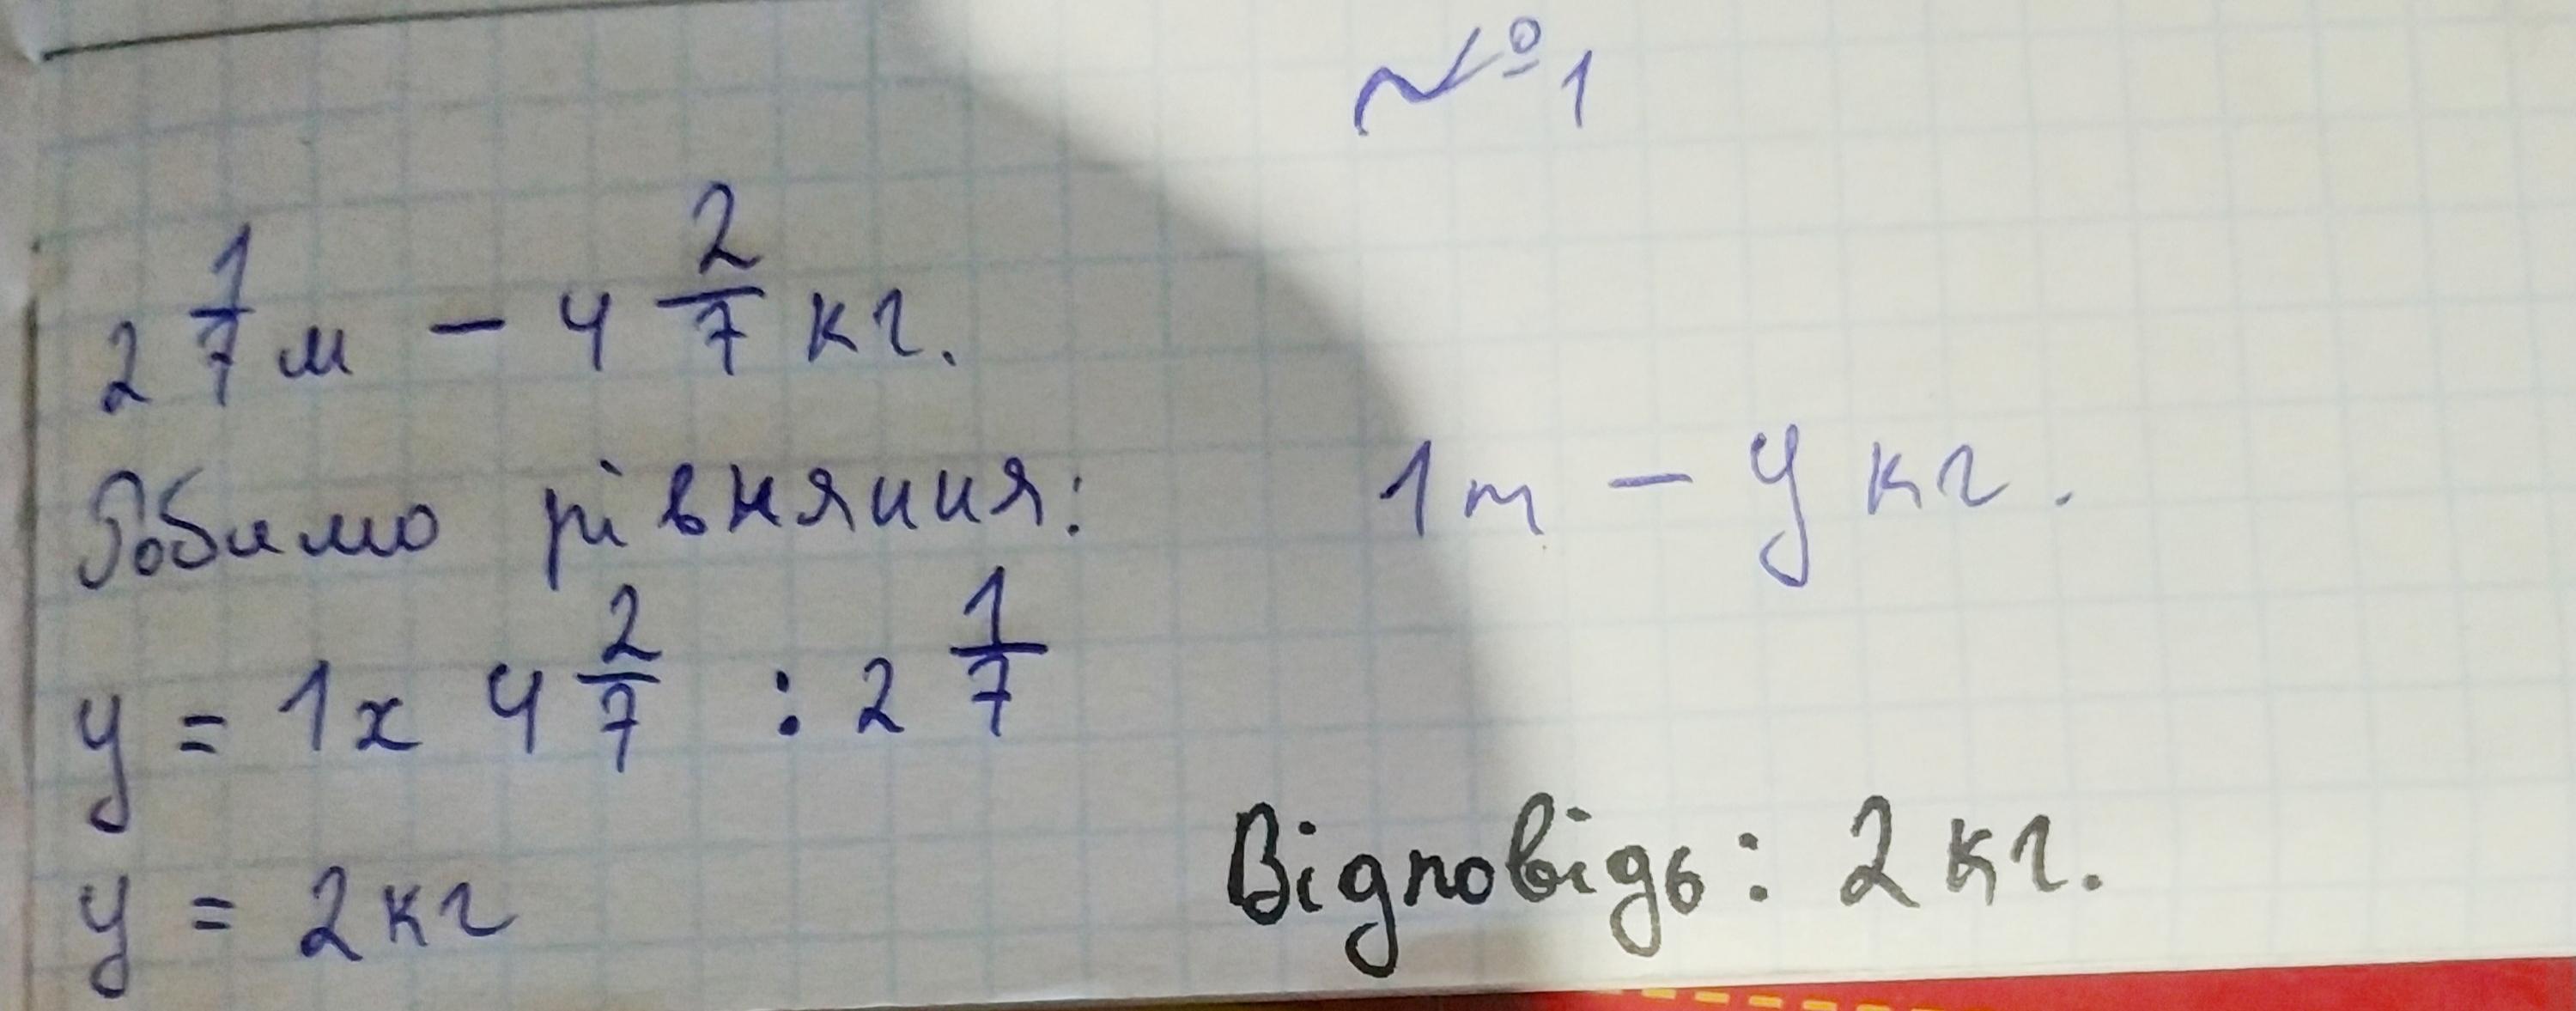 №1
2 1/7 м – 4 2/7 кг.
Робимо рівняння:
1 m – y кг.
y = 1x 4 2/7 : 2 1/7
y = 2 кг
Відповідь: 2 кг.